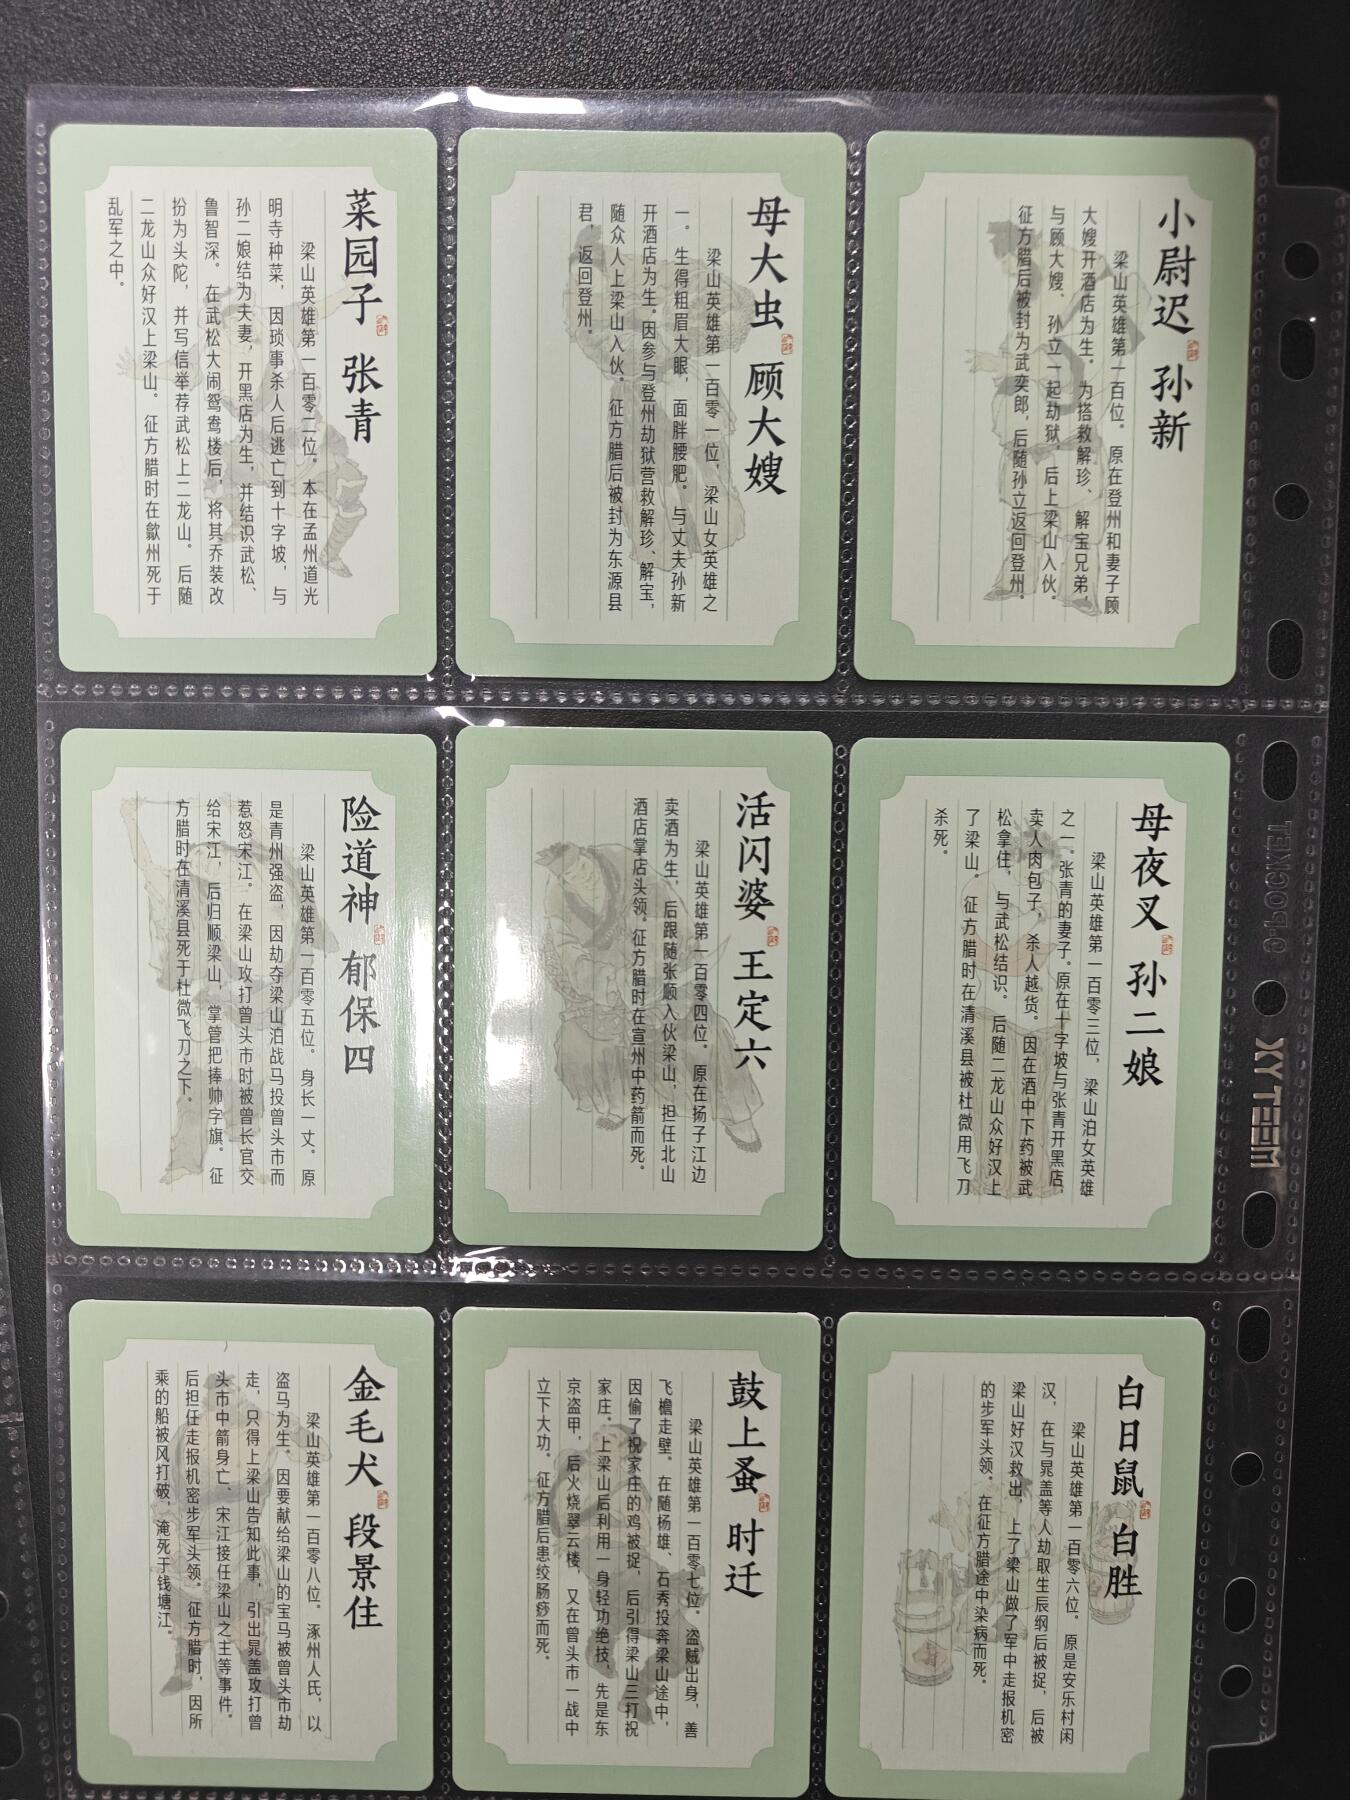 小尉迟 孙新
梁山英雄第一百位。原在登州和妻子顾
大嫂开酒店为生。为搭救解珍、解宝兄弟，
与顾大嫂、孙立一起劫狱，后上梁山入伙。
征方腊后被封为武奕郎，后随孙立返回登州。
母大虫 顾大嫂
梁山英雄第一百零一位，梁山女英雄之
一。生得粗眉大眼，面胖腰肥。与丈夫孙新
开酒店为生。因参与登州劫狱营救解珍、解宝，
随众人上梁山入伙。征方腊后被封为东源县
君，返回登州。
菜园子 张青
梁山英雄第一百零二位。本在孟州道光
明寺种菜，因琐事杀人后逃亡到十字坡，与
孙二娘结为夫妻，开黑店为生，并结识武松、
鲁智深。在武松大闹鸳鸯楼后，将其乔装改
扮为头陀，并写信举荐武松上二龙山。后随
二龙山众好汉上梁山。征方腊时在歙州死于
乱军之中。
母夜叉 孙二娘
梁山英雄第一百零三位，梁山泊女英雄
之一。张青的妻子。原在十字坡与张青开黑店，
卖人肉包子，杀人越货。因在酒中下药被武
松拿住，与武松结识。后随二龙山众好汉上
了梁山。征方腊时在清溪县被杜微用飞刀
杀死。
活闪婆 王定六
梁山英雄第一百零四位。原在扬子江边
卖酒为生，后跟随张顺入伙梁山，担任北山
酒店掌店头领。征方腊时在宣州中药箭而死。
险道神 郁保四
梁山英雄第一百零五位。身长一丈。原
是青州强盗，因劫夺梁山泊战马投曾头市而
惹怒宋江。在梁山攻打曾头市时被曾长官交
给宋江，后归顺梁山，掌管把捧帅字旗。征
方腊时在清溪县死于杜微飞刀之下。
白日鼠 白胜
梁山英雄第一百零六位。原是安乐村闲
汉，在与晁盖等人劫取生辰纲后被捉，后被
梁山好汉救出，上了梁山做了军中走报机密
的步军头领。在征方腊途中染病而死。
鼓上蚤 时迁
梁山英雄第一百零七位。盗贼出身，善
飞檐走壁。在随杨雄、石秀投奔梁山途中，
因偷了祝家庄的鸡被捉，后引得梁山三打祝
家庄。上梁山后利用一身轻功绝技，先是东
京盗甲，后火烧翠云楼，又在曾头市一战中
立下大功。征方腊后患绞肠痧而死。
金毛犬 段景住
梁山英雄第一百零八位。涿州人氏，以
盗马为生。因要献给梁山的宝马被曾头市劫
走，只得上梁山告知此事，引出晁盖攻打曾
头市中箭身亡、宋江接任梁山之主等事件。
后担任走报机密步军头领。征方腊时，因所
乘的船被风打破，淹死于钱塘江。
XYTEEM